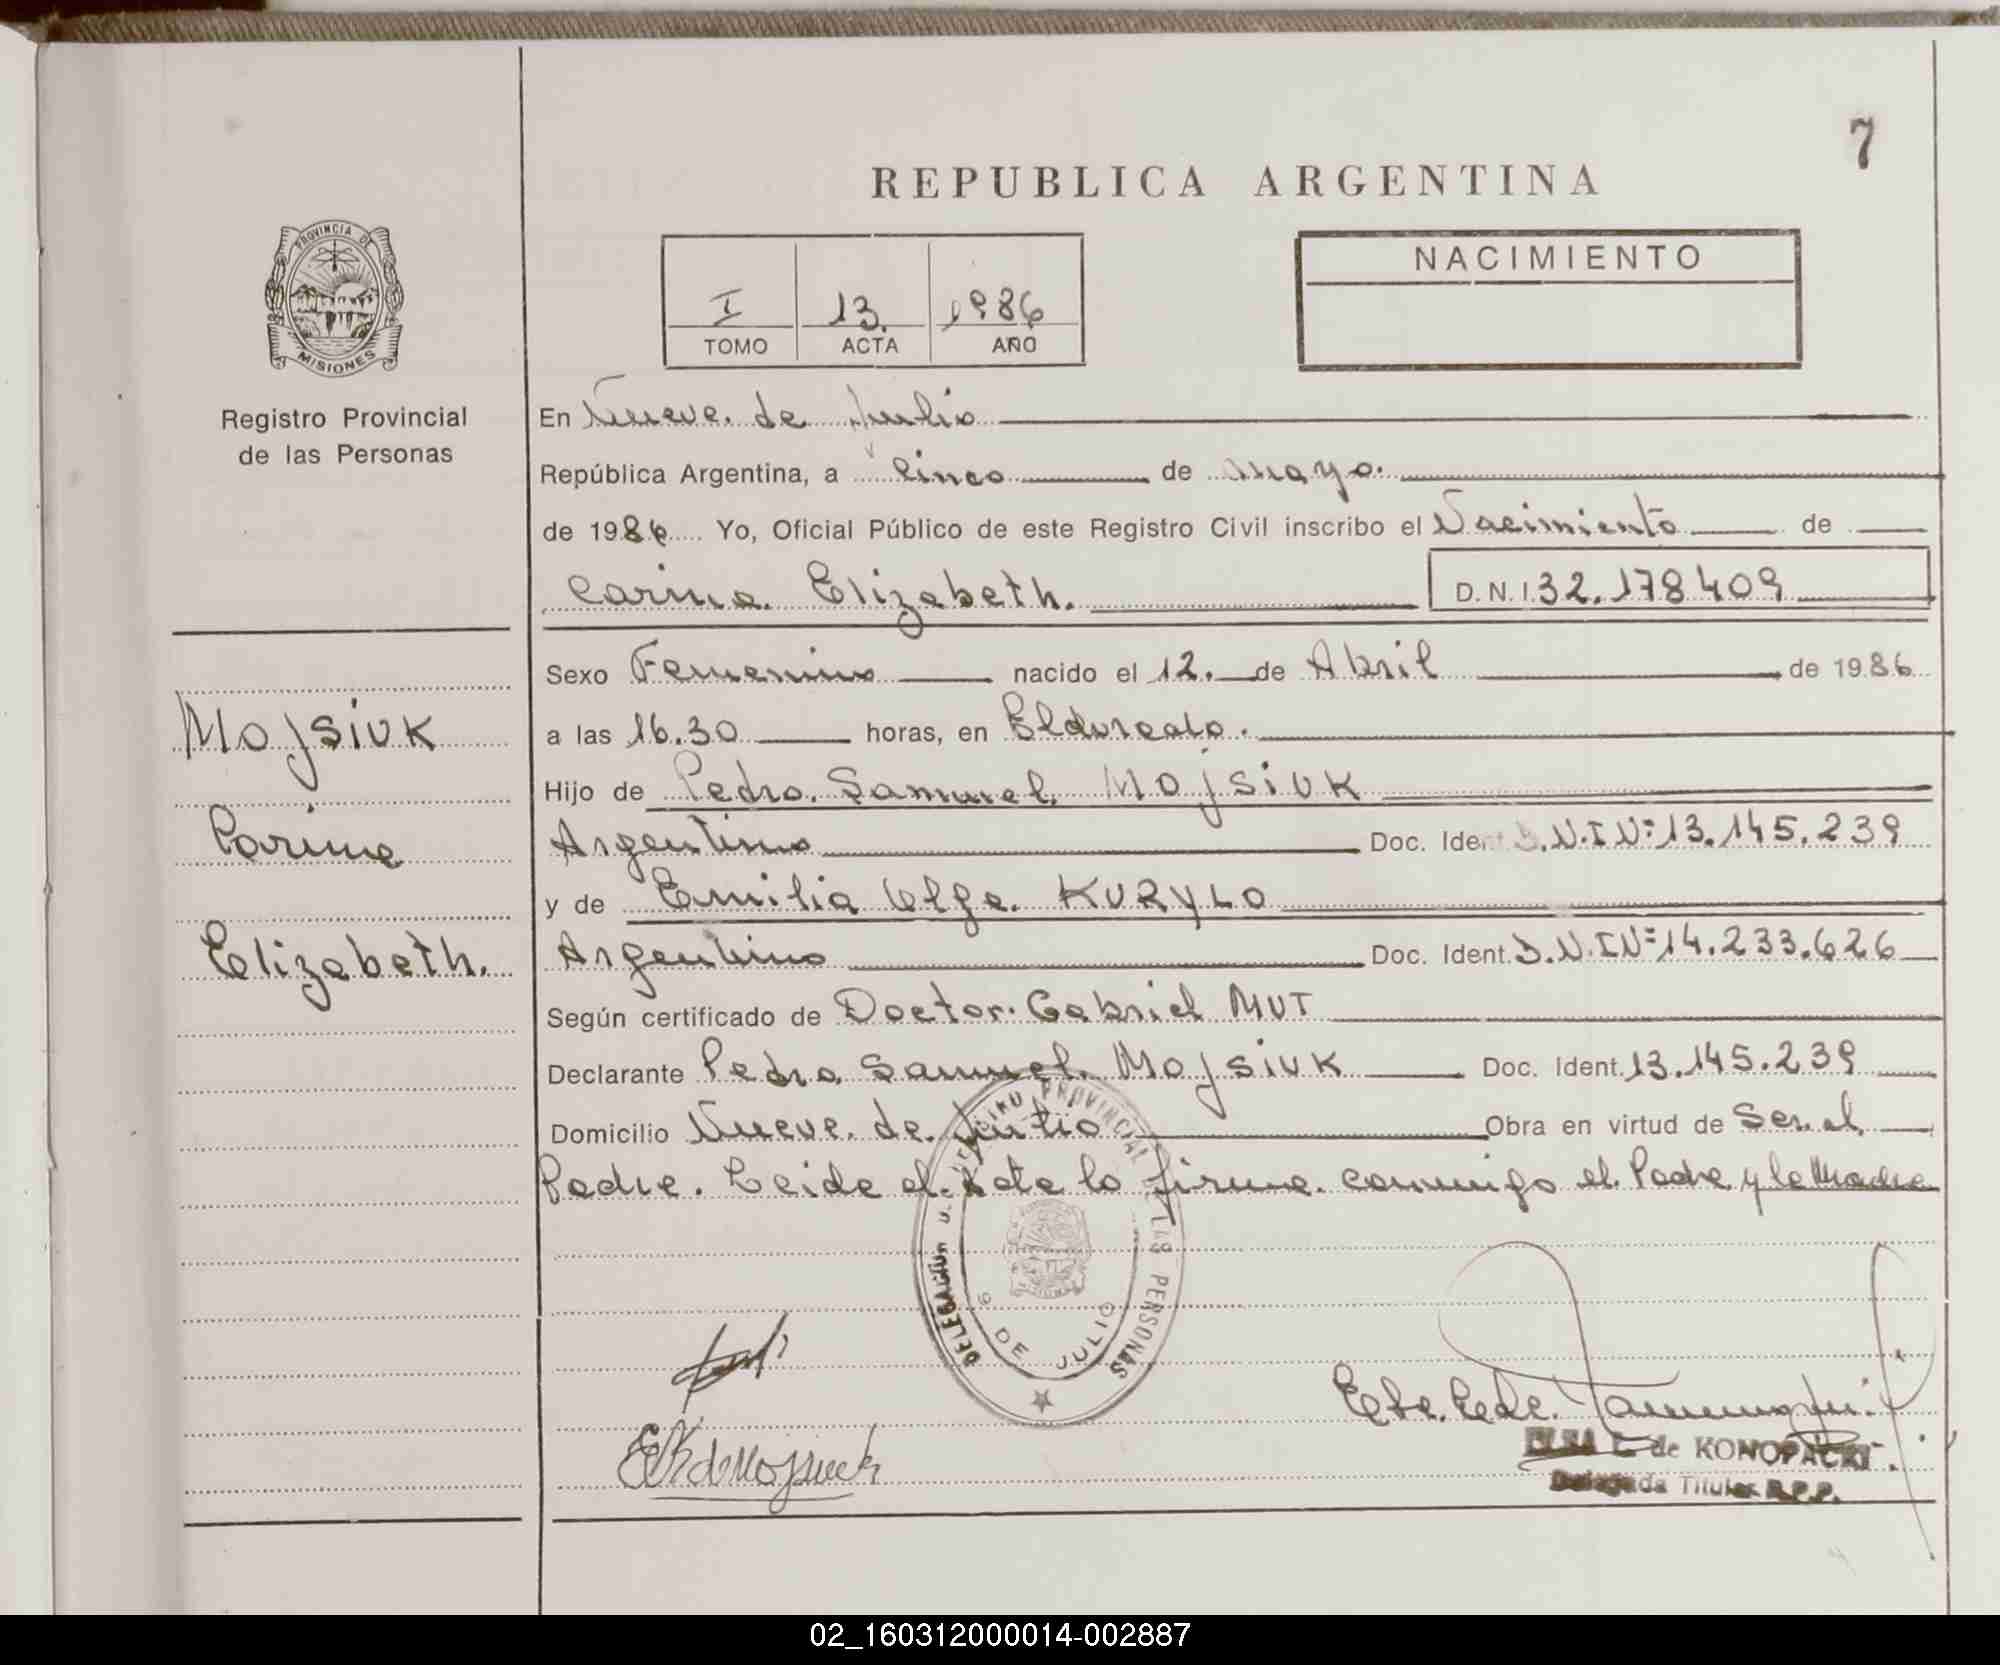 7
REPUBLICA ARGENTINA
PROVINCIA DE
MISIONES
Registro Provincial
de las Personas
I 13. 1986
TOMO ACTA AÑO
NACIMIENTO
En Nueve de Julio
República Argentina, a cinco de mayo.
de 1986 Yo, Oficial Público de este Registro Civil inscribo el Nacimiento de
Carina Elizabeth. D.N.I. 32.178409
Sexo Femenino nacido el 12. de Abril de 1986
Mojsiuk
a las 16.30 horas, en Eldorado.
Hijo de Pedro Samuel MOJSIUK
Carina
Argentino Doc. Ident. D.N.I Nº 13.145.239
y de Emilia KURYLO
Elizabeth.
Argentino Doc. Ident. D.N.I Nº 14.233.626
Según certificado de Doctor. Gabriel MUT
Declarante Pedro Samuel MOJSIUK Doc. Ident. 13.145.239
Domicilio Nueve de Julio Obra en virtud de Ser el
Padre. Leida el Acta la firma conmigo el Padre y la Madre
DELEGACION PROVINCIAL DE LAS PERSONAS
9 DE JULIO
ELSA de KONOPACKI
Delegada Titular R.P.P.
02_160312000014-002887